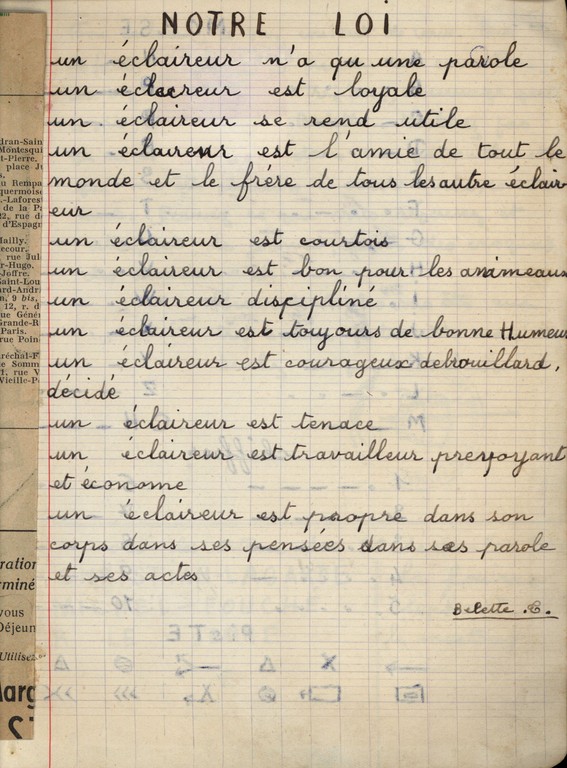 NOTRE LOI
un éclaireur n'a qu'une parole
un éclecreur est loyale
un éclaireur se rend utile
un éclaireur est l'amie de tout le
monde et le frére de tous les autre éclair
eur
un éclaireur est courtois
un éclaireur est bon pour les animeaux
un éclaireur discipliné
un éclaireur est toujours de bonne Humeur
un éclaireur est courageux debrouillard,
décidé
un éclaireur est tenace
un éclaireur est travailleur prevoyant
et économe
un éclaireur est propre dans son
corps dans ses pensées dans ses parole
et ses actes
Belette .C.
dran-Sain
Montesqui
t-Pierre.
place Ju
s.
u Rempa
quermois
.-Laforest
de la Pa
22, rue d
d'Espagn
Mailly.
ecour.
rue Jul
r-Hugo.
Joffre.
Saint-Lou
ard-André
n, 9 bis,
12, r. d
rue Génér
Grande-R
Paris.
rue Poin
réchal-F
e Somm
1, rue V
Vieille-P
ration
rminé
vous
Déjeun
Utilisez
Marg